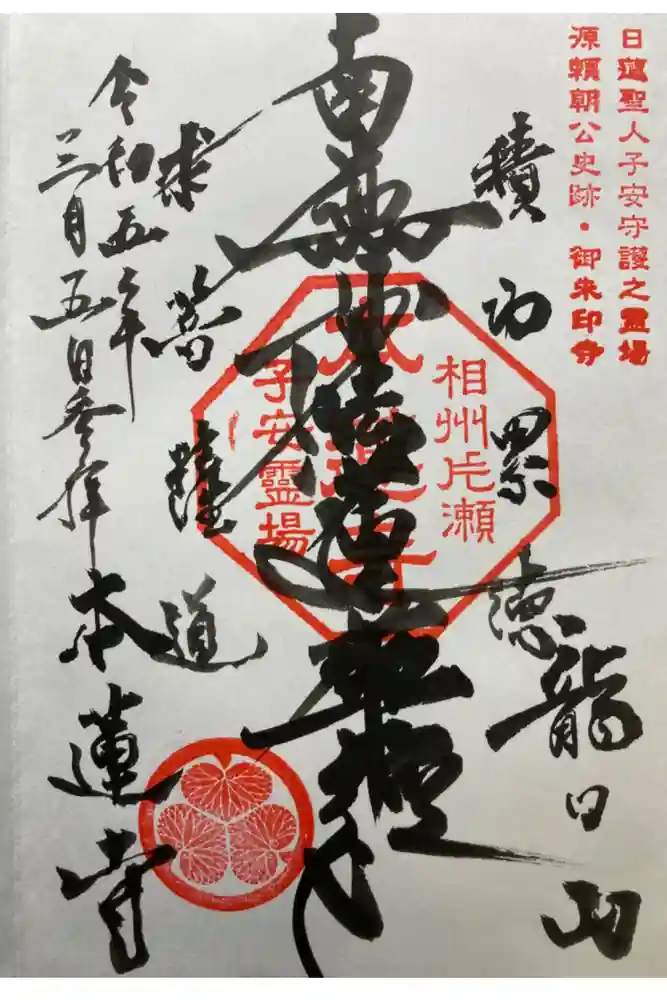 日蓮聖人子安守護之霊場
源頼朝公史跡・御朱印寺
積功累徳
龍口山
南無妙法蓮華経
相州片瀬
本蓮寺
子安霊場
求菩薩道
令和五年
三月五日参拝
本蓮寺